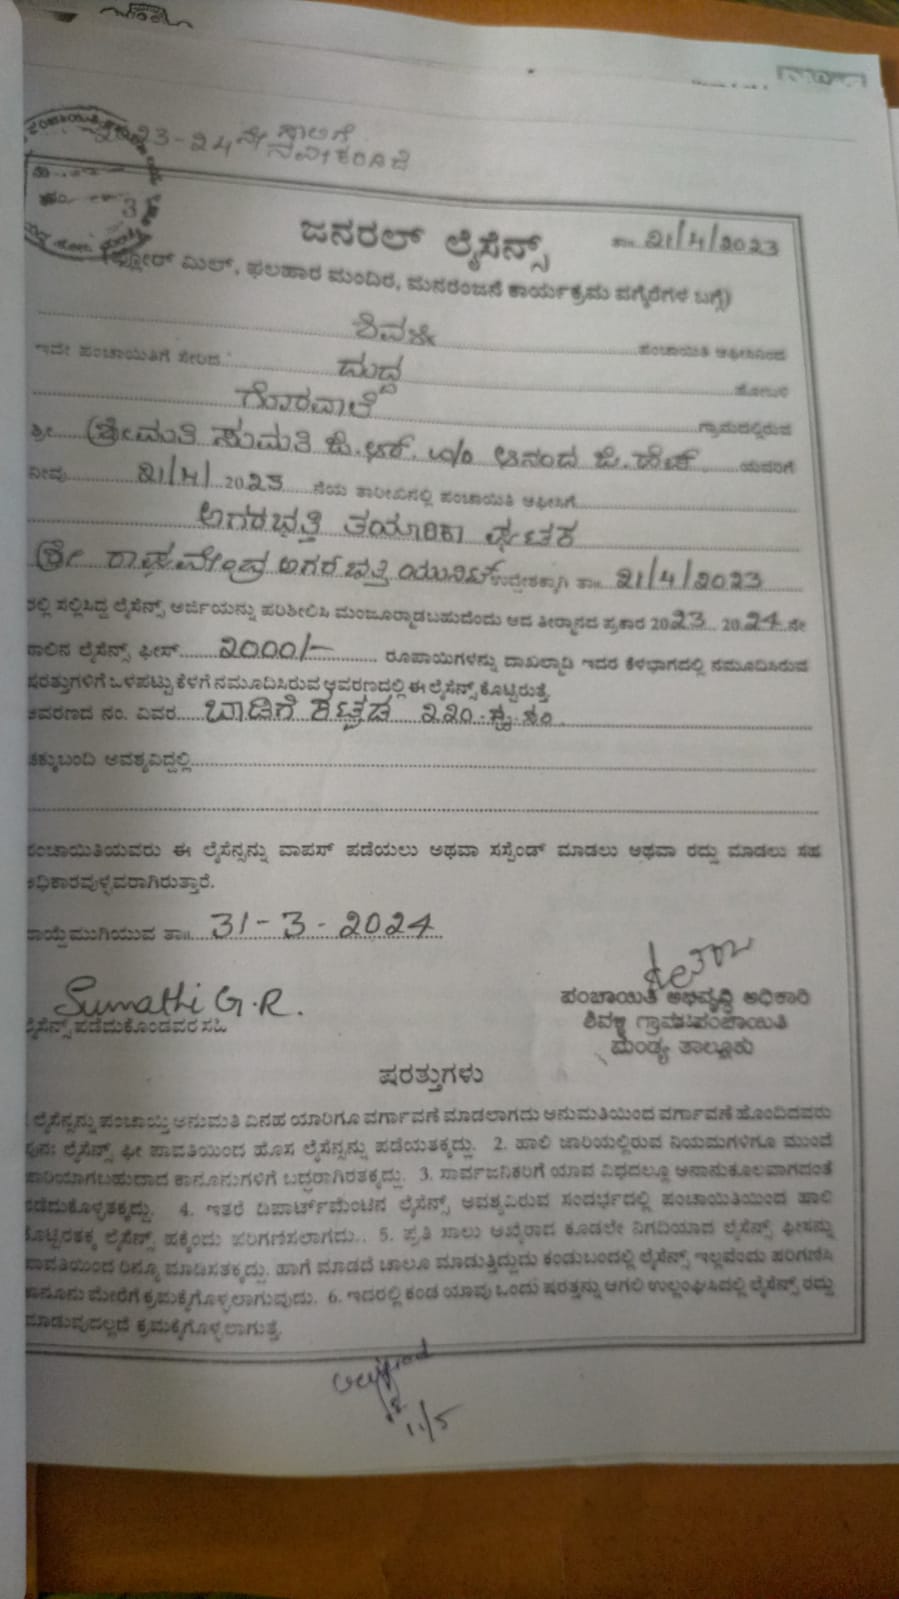 2023-24ನೇ ಸಾಲಿಗೆ
ನವೀಕರಣ
3
ಜನರಲ್ ಲೈಸೆನ್ಸ್ ತಾ॥ 21/4/2023
(ಫ್ಲೋರ್ ಮಿಲ್, ಫಲಹಾರ ಮಂದಿರ, ಮನರಂಜನೆ ಕಾರ್ಯಕ್ರಮ ವಗೈರೆಗಳ ಬಗ್ಗೆ)
ಶಿವಳ್ಳಿ ಪಂಚಾಯಿತಿ ಆಫೀಸಿನಿಂದ
ಇದೇ ಪಂಚಾಯಿತಿಗೆ ಸೇರಿದ ದುದ್ದ ಹೋಬಳಿ
ಗೊರವಾಲೆ ಗ್ರಾಮದಲ್ಲಿರುವ
ಶ್ರೀ ಶ್ರೀಮತಿ ಸುಮತಿ ಜಿ.ಆರ್. w/o ಆನಂದ ಜಿ.ಹೆಚ್. ಯವರಿಗೆ
ನೀವು 21/4/ 2023 ನೆಯ ತಾರೀಖಿನಲ್ಲಿ ಪಂಚಾಯಿತಿ ಆಫೀಸಿಗೆ
ಅಗರಬತ್ತಿ ತಯಾರಿಕಾ ಘಟಕ
ಶ್ರೀ ರಾಘವೇಂದ್ರ ಅಗರ ಬತ್ತಿ ಯುನಿಟ್ ಉದ್ದೇಶಕ್ಕಾಗಿ ತಾ॥ 21/4/2023
ರಲ್ಲಿ ಸಲ್ಲಿಸಿದ್ದ ಲೈಸೆನ್ಸ್ ಅರ್ಜಿಯನ್ನು ಪರಿಶೀಲಿಸಿ ಮಂಜೂರ್‍ಮಾಡಬಹುದೆಂದು ಆದ ತೀರ್ಮಾನದ ಪ್ರಕಾರ 2023 2024 ನೇ
ಸಾಲಿನ ಲೈಸೆನ್ಸ್ ಫೀಸ್ 2000/- ರೂಪಾಯಿಗಳನ್ನು ದಾಖಲ್ಮಾಡಿ ಇದರ ಕೆಳಭಾಗದಲ್ಲಿ ನಮೂದಿಸಿರುವ
ಷರತ್ತುಗಳಿಗೆ ಒಳಪಟ್ಟು ಕೆಳಗೆ ನಮೂದಿಸಿರುವ ಆವರಣದಲ್ಲಿ ಈ ಲೈಸೆನ್ಸ್ ಕೊಟ್ಟಿರುತ್ತೆ.
ಆವರಣದ ನಂ. ವಿವರ ಬಾಡಿಗೆ ಕಟ್ಟಡ 220.ಸ್ವ.ನಂ.
ಚಕ್ಕುಬಂದಿ ಅವಶ್ಯವಿದ್ದಲ್ಲಿ
ಪಂಚಾಯಿತಿಯವರು ಈ ಲೈಸೆನ್ಸನ್ನು ವಾಪಸ್ ಪಡೆಯಲು ಅಥವಾ ಸಸ್ಪೆಂಡ್ ಮಾಡಲು ಅಥವಾ ರದ್ದು ಮಾಡಲು ಸಹ
ಅಧಿಕಾರವುಳ್ಳವರಾಗಿರುತ್ತಾರೆ.
ವಾಯ್ದೆಮುಗಿಯುವ ತಾ॥ 31-3-2024
Sumathi G.R.
ಲೈಸೆನ್ಸ್ ಪಡೆದುಕೊಂಡವರ ಸಹಿ
ಪಂಚಾಯಿತಿ ಅಭಿವೃದ್ಧಿ ಅಧಿಕಾರಿ
ಶಿವಳ್ಳಿ ಗ್ರಾಮ ಪಂಚಾಯಿತಿ
ಮಂಡ್ಯ ತಾಲ್ಲೂಕು
ಷರತ್ತುಗಳು
ಲೈಸೆನ್ಸನ್ನು ಪಂಚಾಯ್ತಿ ಅನುಮತಿ ವಿನಹ ಯಾರಿಗೂ ವರ್ಗಾವಣೆ ಮಾಡಲಾಗದು ಅನುಮತಿಯಿಂದ ವರ್ಗಾವಣೆ ಹೊಂದಿದವರು
ಪುನಃ ಲೈಸೆನ್ಸ್ ಫೀ ಪಾವತಿಯಿಂದ ಹೊಸ ಲೈಸೆನ್ಸನ್ನು ಪಡೆಯತಕ್ಕದ್ದು. 2. ಹಾಲಿ ಜಾರಿಯಲ್ಲಿರುವ ನಿಯಮಗಳಿಗೂ ಮುಂದೆ
ಜಾರಿಯಾಗಬಹುದಾದ ಕಾನೂನುಗಳಿಗೆ ಬದ್ಧರಾಗಿರತಕ್ಕದ್ದು. 3. ಸಾರ್ವಜನಿಕರಿಗೆ ಯಾವ ವಿಧದಲ್ಲೂ ಅನಾನುಕೂಲವಾಗದಂತೆ
ನಡೆದುಕೊಳ್ಳತಕ್ಕದ್ದು. 4. ಇತರೆ ಡಿಪಾರ್ಟ್‌ಮೆಂಟಿನ ಲೈಸೆನ್ಸ್ ಅವಶ್ಯವಿರುವ ಸಂದರ್ಭದಲ್ಲಿ ಪಂಚಾಯಿತಿಯಿಂದ ಹಾಲಿ
ಕೊಟ್ಟಿರತಕ್ಕ ಲೈಸೆನ್ಸ್ ಹಕ್ಕೆಂದು ಪರಿಗಣಿಸಲಾಗದು.. 5. ಪ್ರತಿ ಸಾಲು ಆಖೈರಾದ ಕೂಡಲೇ ನಿಗದಿಯಾದ ಲೈಸೆನ್ಸ್ ಫೀಸನ್ನು
ಪಾವತಿಯಿಂದ ರಿನ್ಯೂ ಮಾಡಿಸತಕ್ಕದ್ದು. ಹಾಗೆ ಮಾಡದೆ ಚಾಲೂ ಮಾಡುತ್ತಿದ್ದುದು ಕಂಡುಬಂದಲ್ಲಿ ಲೈಸೆನ್ಸ್ ಇಲ್ಲವೆಂದು ಪರಿಗಣಿಸಿ
ಕಾನೂನು ಮೇರೆಗೆ ಕ್ರಮಕೈಗೊಳ್ಳಲಾಗುವುದು. 6. ಇದರಲ್ಲಿ ಕಂಡ ಯಾವು ಒಂದು ಷರತ್ತನ್ನು ಆಗಲಿ ಉಲ್ಲಂಘಿಸಿದಲ್ಲಿ ಲೈಸೆನ್ಸ್ ರದ್ದು
ಮಾಡುವುದಲ್ಲದೆ ಕ್ರಮಕೈಗೊಳ್ಳಲಾಗುತ್ತೆ.
Verified
11/5